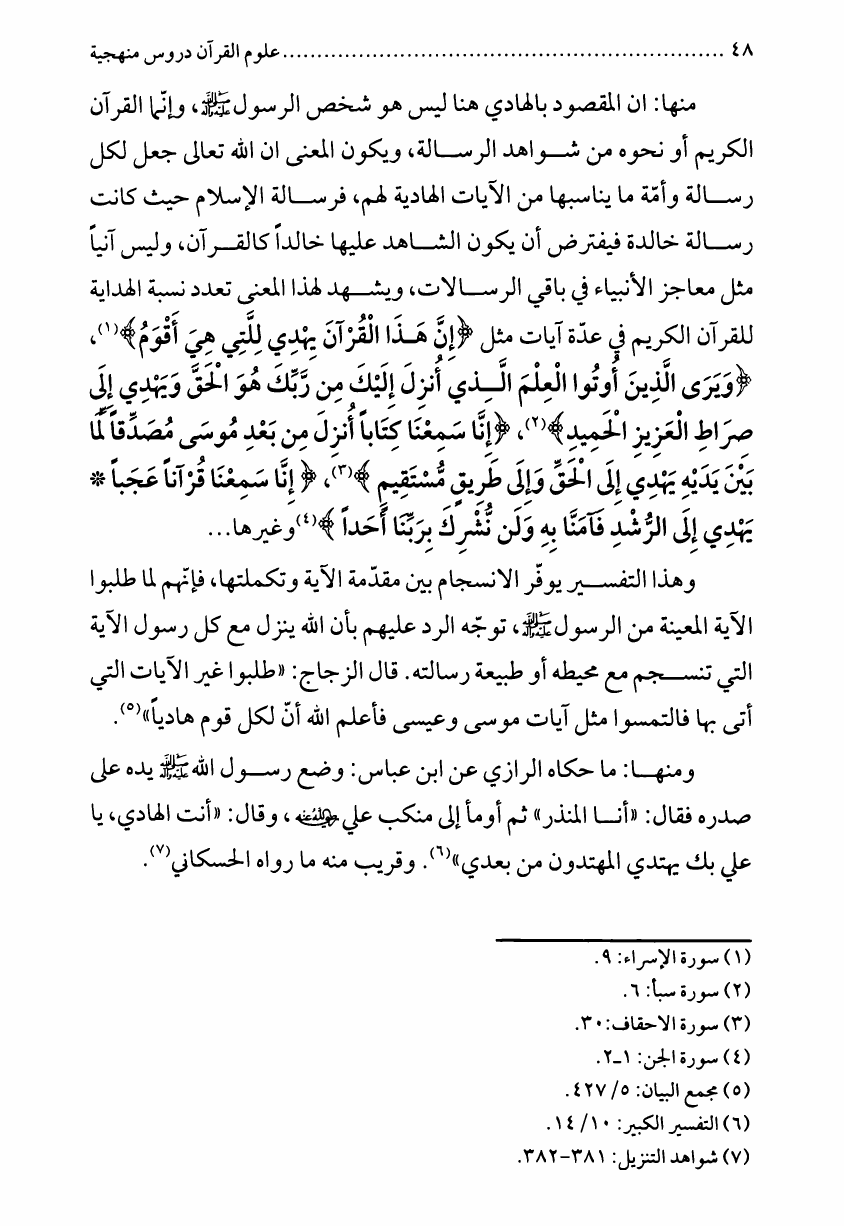 ٤٨ ................................................................. علوم القرآن دروس منهجية
منها: ان المقصود بالهادي هنا ليس هو شخص الرسول ﷺ، وإنّما القرآن
الكريم أو نحوه من شواهد الرسالة، ويكون المعنى ان الله تعالى جعل لكل
رسالة وأمّة ما يناسبها من الآيات الهادية لهم، فرسالة الإسلام حيث كانت
رسالة خالدة فيفترض أن يكون الشاهد عليها خالداً كالقرآن، وليس آنياً
مثل معاجز الأنبياء في باقي الرسالات، ويشهد لهذا المعنى تعدد نسبة الهداية
للقرآن الكريم في عدّة آيات مثل ﴿إِنَّ هَذَا الْقُرْآنَ يِهْدِي لِلَّتِي هِيَ أَقْوَمُ﴾(١)،
﴿وَيَرَى الَّذِينَ أُوتُوا الْعِلْمَ الَّذِي أُنزِلَ إِلَيْكَ مِن رَّبِّكَ هُوَ الْحَقَّ وَيَهْدِي إِلَى
صِرَاطِ الْعَزِيزِ الْحَمِيدِ﴾(٢)، ﴿إِنَّا سَمِعْنَا كِتَاباً أُنزِلَ مِن بَعْدِ مُوسَى مُصَدِّقاً لِّمَا
بَيْنَ يَدَيْهِ يَهْدِي إِلَى الْحَقِّ وَإِلَى طَرِيقٍ مُّسْتَقِيمٍ ﴾(٣)، ﴿ إِنَّا سَمِعْنَا قُرْآناً عَجَباً *
يَهْدِي إِلَى الرُّشْدِ فَآمَنَّا بِهِ وَلَن نُّشْرِكَ بِرَبِّنَا أَحَداً ﴾(٤) وغيرها...
وهذا التفسير يوفّر الانسجام بين مقدّمة الآية وتكملتها، فإنّهم لما طلبوا
الآية المعينة من الرسول ﷺ، توجّه الرد عليهم بأن الله ينزل مع كل رسول الآية
التي تنسجم مع محيطه أو طبيعة رسالته. قال الزجاج: «طلبوا غير الآيات التي
أتى بها فالتمسوا مثل آيات موسى وعيسى فأعلم الله أنّ لكل قوم هادياً»(٥).
ومنها: ما حكاه الرازي عن ابن عباس: وضع رسول الله ﷺ يده على
صدره فقال: «أنا المنذر» ثم أومأ إلى منكب علي، وقال: «أنت الهادي، يا
علي بك يهتدي المهتدون من بعدي»(٦). وقريب منه ما رواه الحسكاني(٧).
(١) سورة الإسراء: ٩.
(٢) سورة سبأ: ٦.
(٣) سورة الاحقاف: ٣٠.
(٤) سورة الجن: ١ـ٢.
(٥) مجمع البيان: ٥/ ٤٢٧.
(٦) التفسير الكبير: ١٠/ ١٤.
(٧) شواهد التنزيل: ٣٨١-٣٨٢.